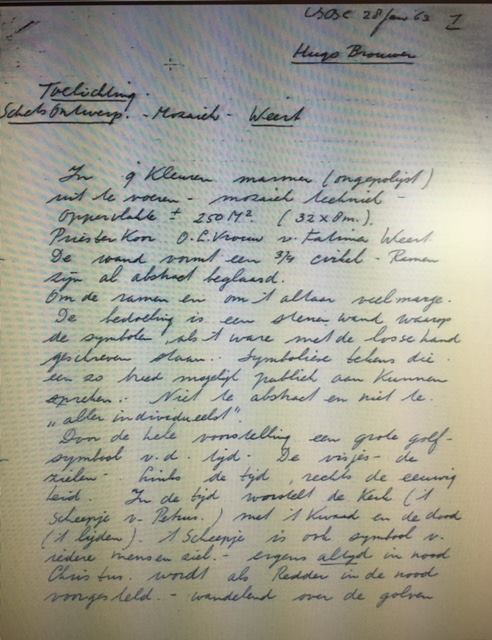 28 Jan 63 I
Hugo Brouwer
Toelichting.
Schets Ontwerp. - Mozaiek - Weert
In 9 Kleuren marmer (ongepolijst)
uit te voeren - mozaiek techniek -
Oppervlakte ± 250 M². (32 x 8 m.).
Priester Koor O.L. Vrouw v. Fatima Weert
De wand vormt een 3/4 cirkel - Ramen
zijn al abstract beglaasd.
Om de ramen en om 't altaar veel marge.
De bedoeling is een stenen wand waarop
de symbolen, als 't ware met de losse hand
geschreven staan.. Symbolieke tekens die
een zo breed mogelijk publiek aan kunnen
spreken.. Niet te abstract en niet te
"aller individueelst".
Door de hele voorstelling een grote golf-
symbool v.d. tijd - De visjes - de
zielen - Links de tijd, rechts de eeuwig
heid. In de tijd worstelt de Kerk ('t
Scheepje v. Petrus.) met 't Kwaad en de dood
('t lijden). 't Scheepje is ook symbool v.
iedere mensen ziel. - ergens altijd in nood
Christus. wordt als Redder in de nood
voorgesteld. - wandelend over de golven